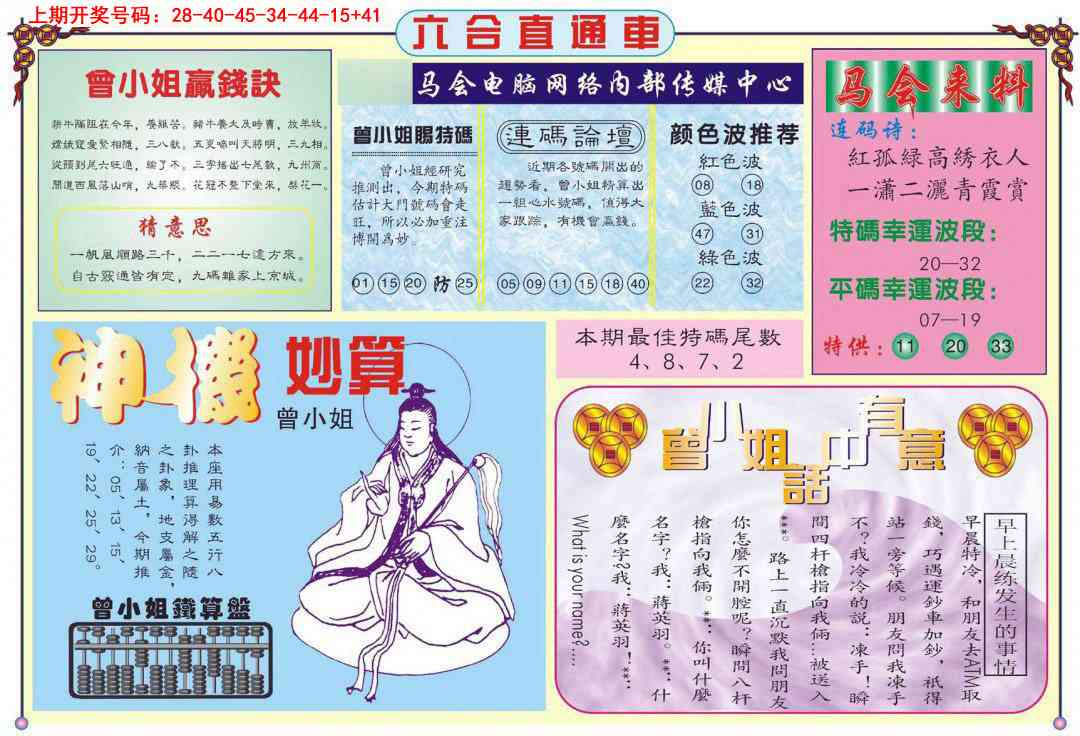 上期开奖号码：28-40-45-34-44-15+41
六合直通車
马会电脑网络内部传媒中心
曾小姐贏錢訣
猜意思
一帆風順路三千，二二一七遠方來。
自古窮通皆有定，九碼離家上京城。
曾小姐賜特碼
曾小姐經研究
推測出，今期特碼
估計大門號碼會走
旺，所以必加重注
博開爲妙。
01 15 20 防 25
連碼論壇
近期各號碼開出的
趨勢看，曾小姐精算出
一組心水號碼，值得大
家跟踪，有機會贏錢。
05 09 11 15 18 40
颜色波推荐
紅色波
08 18
藍色波
47 31
綠色波
22 32
马会来料
连码诗：
紅孤緑高綉衣人
一瀟二灑青霞賞
特碼幸運波段：
20—32
平碼幸運波段：
07—19
特供：11 20 33
本期最佳特碼尾數
4、8、7、2
神機妙算
曾小姐
本座用易數五行八
卦推理算得解之隨
之卦象，地支屬金，
納音屬土，今期推
介：05、13、15、
19、22、25、29。
曾小姐鐵算盤
曾小姐話中有意
早上晨练发生的事情
早晨特冷，和朋友去ATM取
錢，巧遇運鈔車加鈔，祇得
站一旁等候。朋友問我凍手
不？我冷冷的說：凍手！瞬
間四杆槍指向我倆…被送入
***。路上一直沉默我問朋友
你怎麼不開腔呢？瞬間八杆
槍指向我倆。***：你叫什麼
名字？我：蔣英羽。***：什
麼名字?我：蔣英羽！***：
What is your name?....